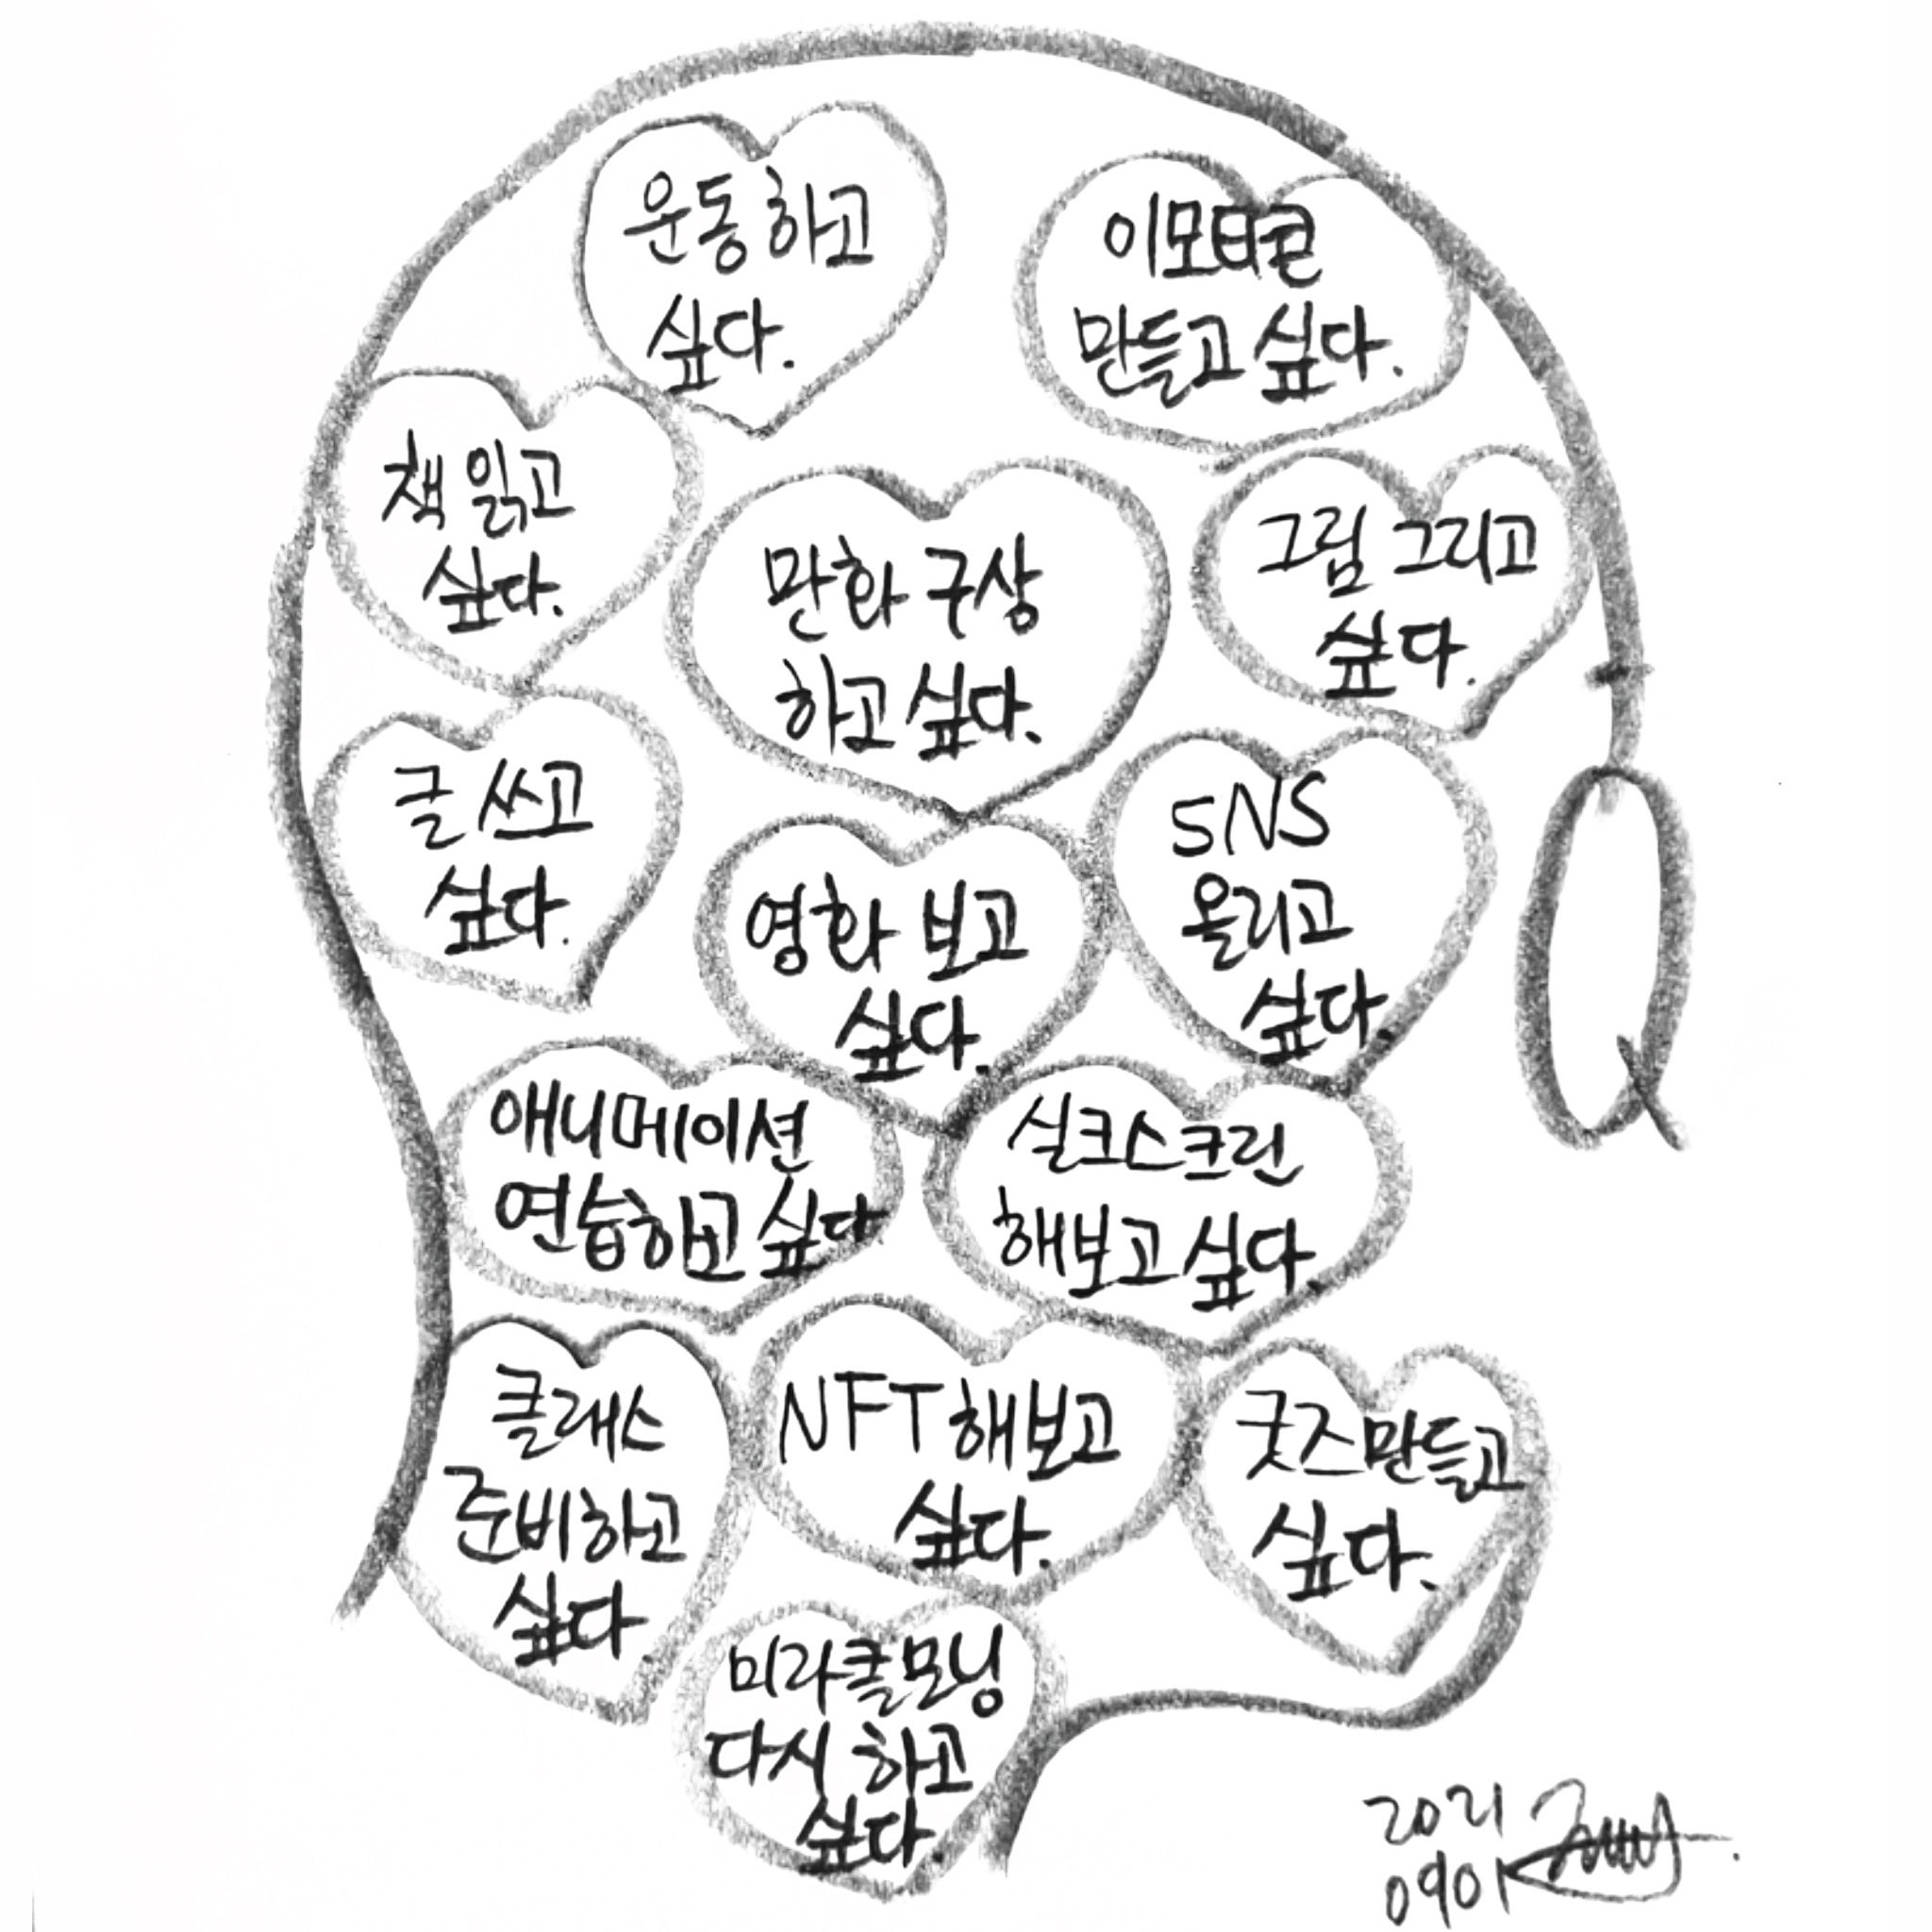 운동하고
싶다.
이모티콘
만들고 싶다.
책 읽고
싶다.
만화 구상
하고 싶다.
그림 그리고
싶다.
글 쓰고
싶다.
영화 보고
싶다.
SNS
올리고
싶다.
애니메이션
연습하고 싶다
실크스크린
해보고 싶다.
클래스
준비하고
싶다
NFT 해보고
싶다.
굿즈만들고
싶다.
미라클모닝
다시 하고
싶다.
2021
0901